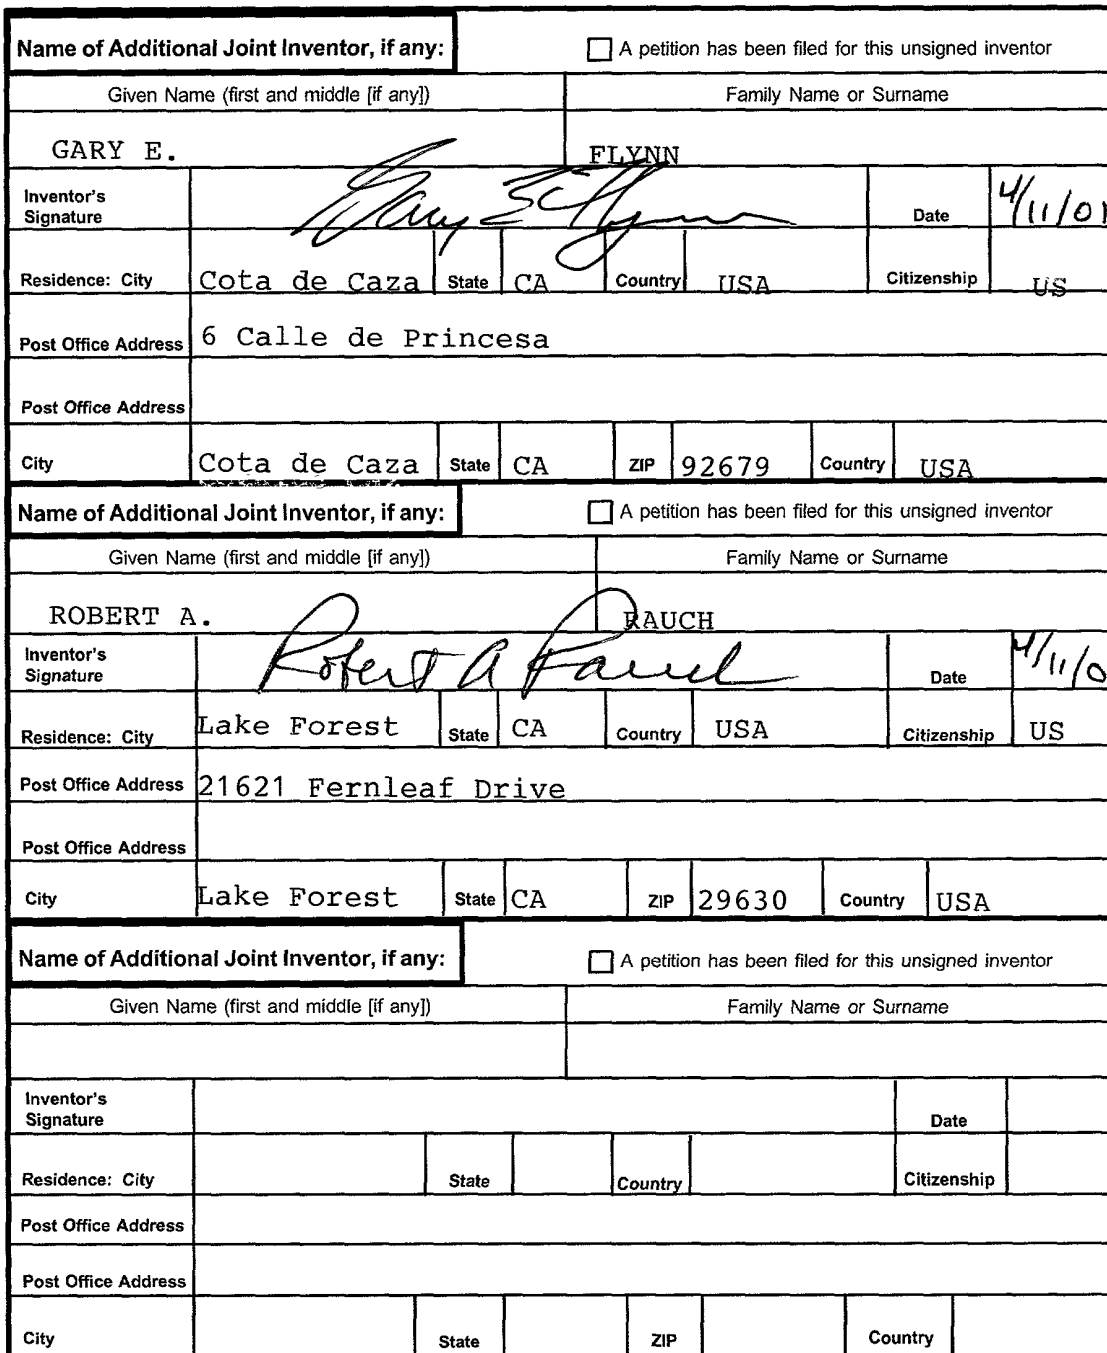 Name of Additional Joint Inventor, if any: A petition has been filed for this unsigned inventor
Given Name (first and middle [if any]) Family Name or Surname
GARY E. FLYNN
Inventor's Signature Gary E Flynn Date 4/11/01
Residence: City Cota de Caza State CA Country USA Citizenship US
Post Office Address 6 Calle de Princesa
Post Office Address
City Cota de Caza State CA ZIP 92679 Country USA
Name of Additional Joint Inventor, if any: A petition has been filed for this unsigned inventor
Given Name (first and middle [if any]) Family Name or Surname
ROBERT A. RAUCH
Inventor's Signature Robert A Rauch Date 4/11/0
Residence: City Lake Forest State CA Country USA Citizenship US
Post Office Address 21621 Fernleaf Drive
Post Office Address
City Lake Forest State CA ZIP 29630 Country USA
Name of Additional Joint Inventor, if any: A petition has been filed for this unsigned inventor
Given Name (first and middle [if any]) Family Name or Surname
Inventor's Signature Date
Residence: City State Country Citizenship
Post Office Address
Post Office Address
City State ZIP Country